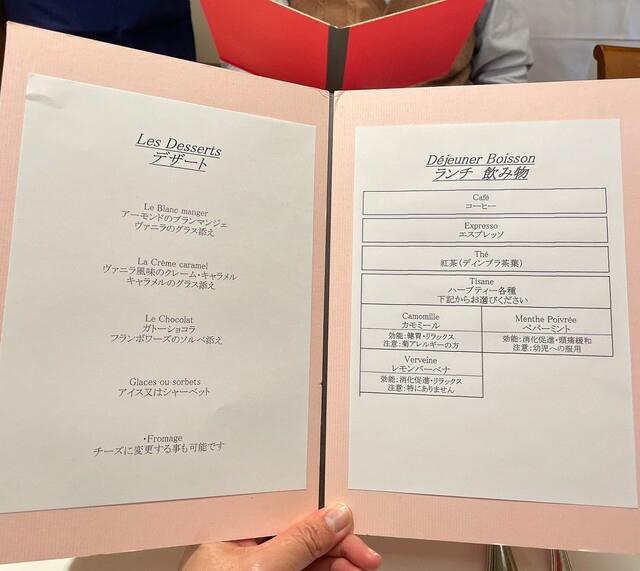 Les Desserts
デザート
Le Blanc manger
アーモンドのブランマンジェ
ヴァニラのグラス添え
La Crème caramel
ヴァニラ風味のクレーム・キャラメル
キャラメルのグラス添え
Le Chocolat
ガトーショコラ
フランボワーズのソルベ添え
Glaces ou sorbets
アイス又はシャーベット
・Fromage
チーズに変更する事も可能です
Déjeuner Boisson
ランチ 飲み物
Café
コーヒー
Expresso
エスプレッソ
Thé
紅茶(ディンブラ茶葉)
Tisane
ハーブティー各種
下記からお選びください
Camomille
カモミール
効能:健胃・リラックス
注意:菊アレルギーの方
Menthe Poivrée
ペパーミント
効能:消化促進・頭痛緩和
注意:幼児への服用
Verveine
レモンバーベナ
効能:消化促進・リラックス
注意:特にありません